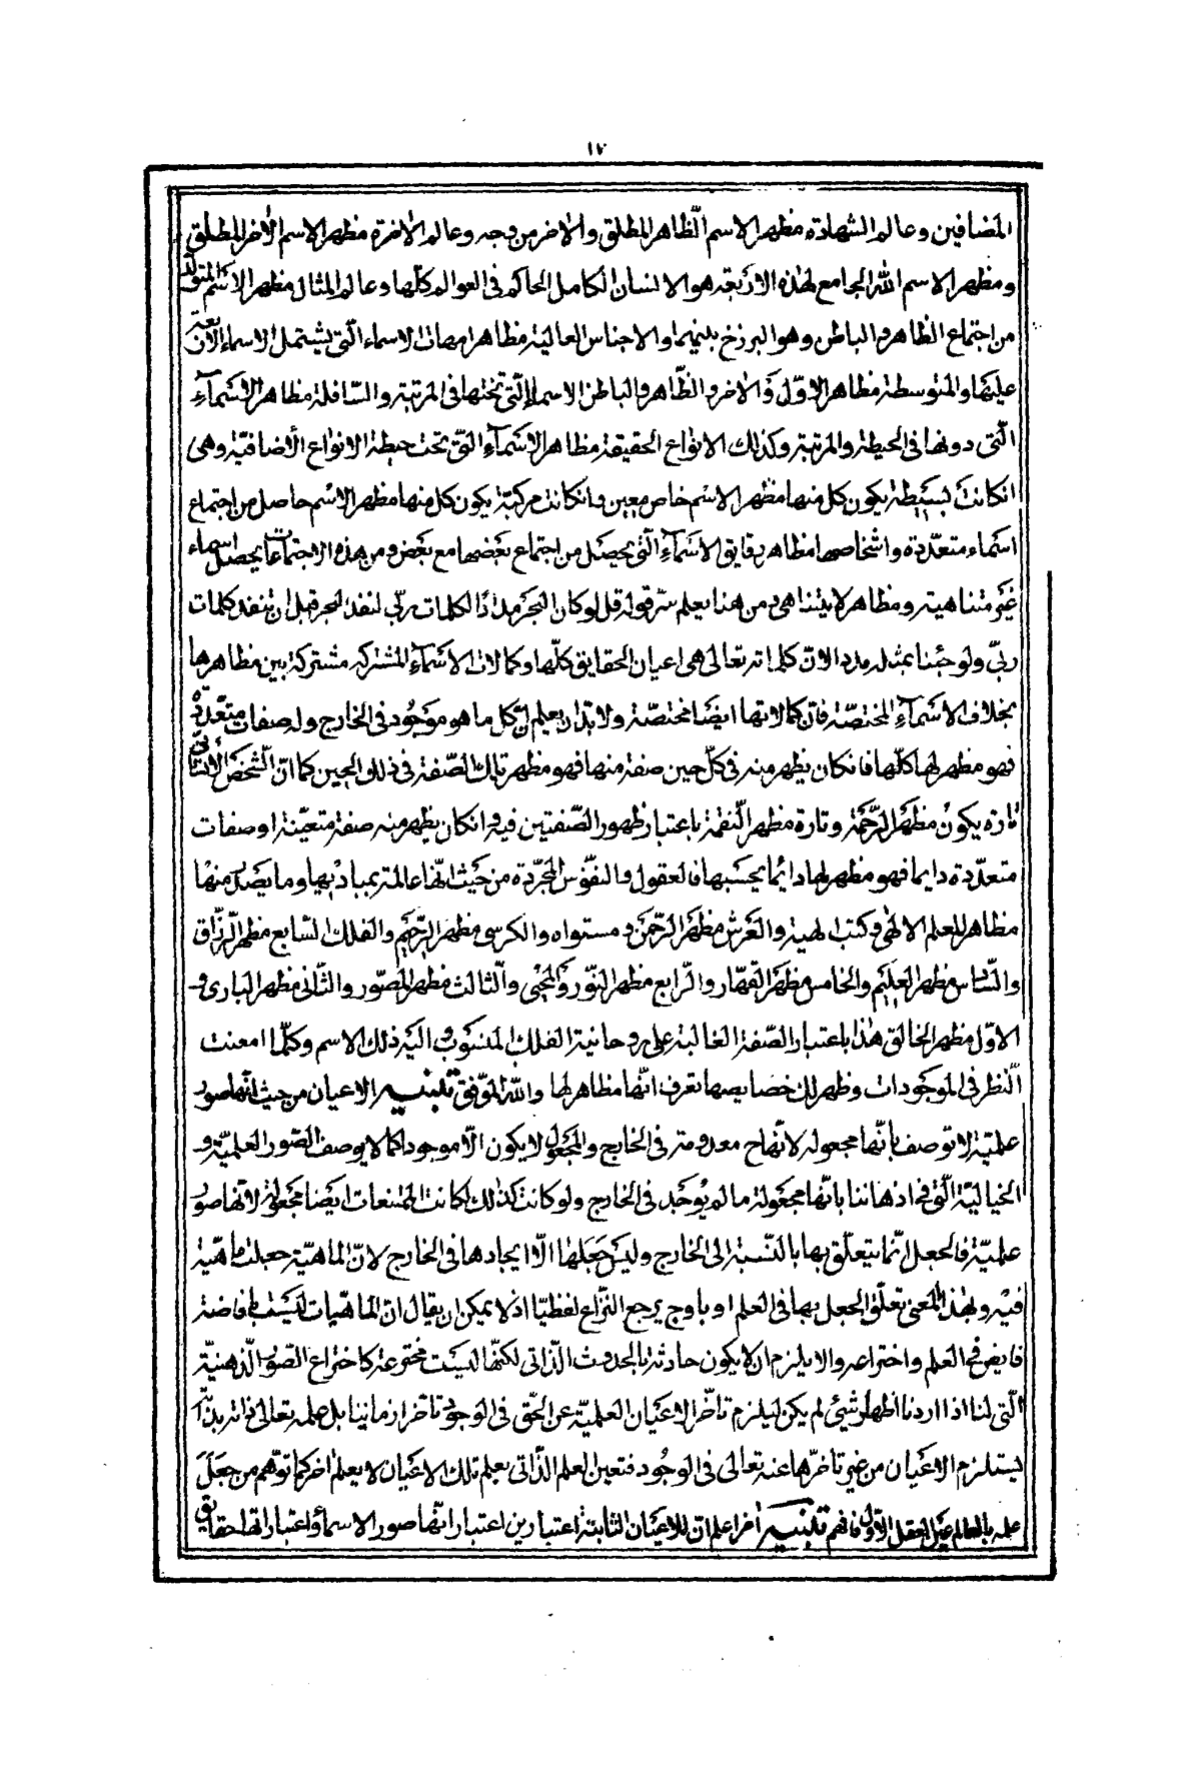 ١٧
المضافين وعالم الشهادة مظهر الاسم الظاهر المطلق والآخر من وجه وعالم الآخرة مظهر الاسم الآخر المطلق
ومظهر الاسم الله الجامع لهذه الاربعة هو الانسان الكامل الحاكم فى العوالم كلّها وعالم المثال مظهر الاسم المتولّد
من اجتماع الظاهر والباطن وهو البرزخ بينهما والاجناس العالية مظاهر امهات الاسماء الّتى يشتمل الاسماء الاربعة
عليها والمتوسطة مظاهر الاوّل والآخر والظّاهر والباطن الاسماء الّتى تحتها فى المرتبة والسّافلة مظاهر الاسمآء
الّتى دونها فى الحيطة والمرتبة وكذلك الانواع الحقيقة مظاهر الاسمآء الّتى تحت حيطة الانواع الأضافيّة وهى
انكانت بسيطة يكون كل منها مظهر الاسم خاص معين وانكانت مركبّة يكون كل منها مظهر الاسم حاصل من اجتماع
اسماء متعدّدة واشخاصها مظاهر رقايق الاسمآء الّتى يحصل من اجتماع بعضها مع بعض ومن هذه الاجتماعات يحصل اسماء
غير متناهية ومظاهر لا يتناهى ومن هنا يعلم سرّ قوله قل لو كان البحر مدادًا لكلمات ربّى لنفد البحر قبل ان تنفد كلمات
ربّى ولو جئنا بمثله مددا لانّ كلماته تعالى هى اعيان الحقايق كلّها وكمالات الاسمآء المشتركة مشتركة بين مظاهرها
بخلاف الاسمآء المختصّة فانّ كمالاتها ايضا مختصّة ولا بدّ ان يعلم انّ كل ما هو موجود فى الخارج وله صفات متعدّدة
فهو مظهر لها كلّها فانكان يظهر منه فى كلّ حين صفة منها فهو مظهر تلك الصّفة فى ذلك الحين كما انّ الشّخص الانسانى
تارة يكون مظهر الرّحمة وتارة مظهر النّقمة باعتبار ظهور الصّفتين فيه وانكان يظهر منه صفة متعيّنة او صفات
متعدّدة دايما فهو مظهر لها دائما بحسبها فالعقول والنفوس المجرّدة من حيث انّها عالمة بمباديها وما يصدر منها
مظاهر للعلم الالهى وكتب الهية والعرش مظهر الرّحمن ومستواه والكرسى مظهر الرّحيم والفلك السّابع مظهر الرّزّاق
والسّادس مظهر العليم والخامس مظهر القهّار والرّابع مظهر النّور والمحيى والثّالث مظهر المصّور والثّانى مظهر البارى و
الاوّل مظهر الخالق هذا باعتبار الصّفة الغالبة على روحانية الفلك المنسوب اليه ذلك الاسم وكلّما امعنت
النّظر فى الموجودات وظهر لك خصايصها تعرف انّها مظاهر لها والله الموّفق تنبيه الاعيان من حيث انّها صور
علميّة لا توصف بانّها مجعولة لانّها ح معدومة فى الخارج والمجعول لا يكون الّا موجودا كما لا يوصف الصّور العلميّة و
الخياليّة الّتى فى اذهاننا بانّها مجعولة ما لم يوجد فى الخارج ولو كانت كذلك لكانت الممتنعات ايضا مجعولة لانّها صور
علميّة فالجعل انّما يتعلّق بها بالنّسبة الى الخارج وليس جعلها الّا ايجادها فى الخارج لا انّ الماهيّة جعلت ماهيّة
فيه وبهذا المعنى تعلّق الجعل بها فى العلم اوباوج يرجع النّزاع لفظيّا اذ لا يمكن ان يقال انّ الماهيّات ليست بافاضة
فايض فى العلم واختراعه والا يلزم ان لا يكون حادثة بالحدوث الذّاتى لكنّها ليست مخترعة كاختراع الصّور الذّهنيّة
الّتى لنا اذا اردنا اظهار شىء لم يكن ليلزم تاخّر الاعيان العلميّة عن الحقّ فى الوجود تاخّرا زمانيّا بل علمه تعالى ذاته بذاته
يستلزم الاعيان من غير تاخّرها عنه تعالى فى الوجود فبعين العلم الذّاتى يعلم تلك الاعيان لا بعلم اخر كما توهّم من جعل
علمه بالعالم عين العقل الاوّل فافهم تنبيه اخر اعلم انّ للاعيان الثابتة اعتبارين اعتبار انّها صور الاسماء واعتبار انّها حقايق